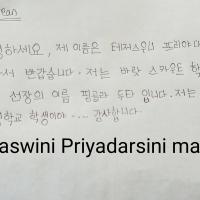 하세요, 제 이름은 테저스위니 프리야다
서 반갑습니다. 저는 바랏 스카우트
선장의 이름 핑골라 두타 입니다. 저는
학교 학생이야 .... 감사합니다.
aswini Priyadarsini ma